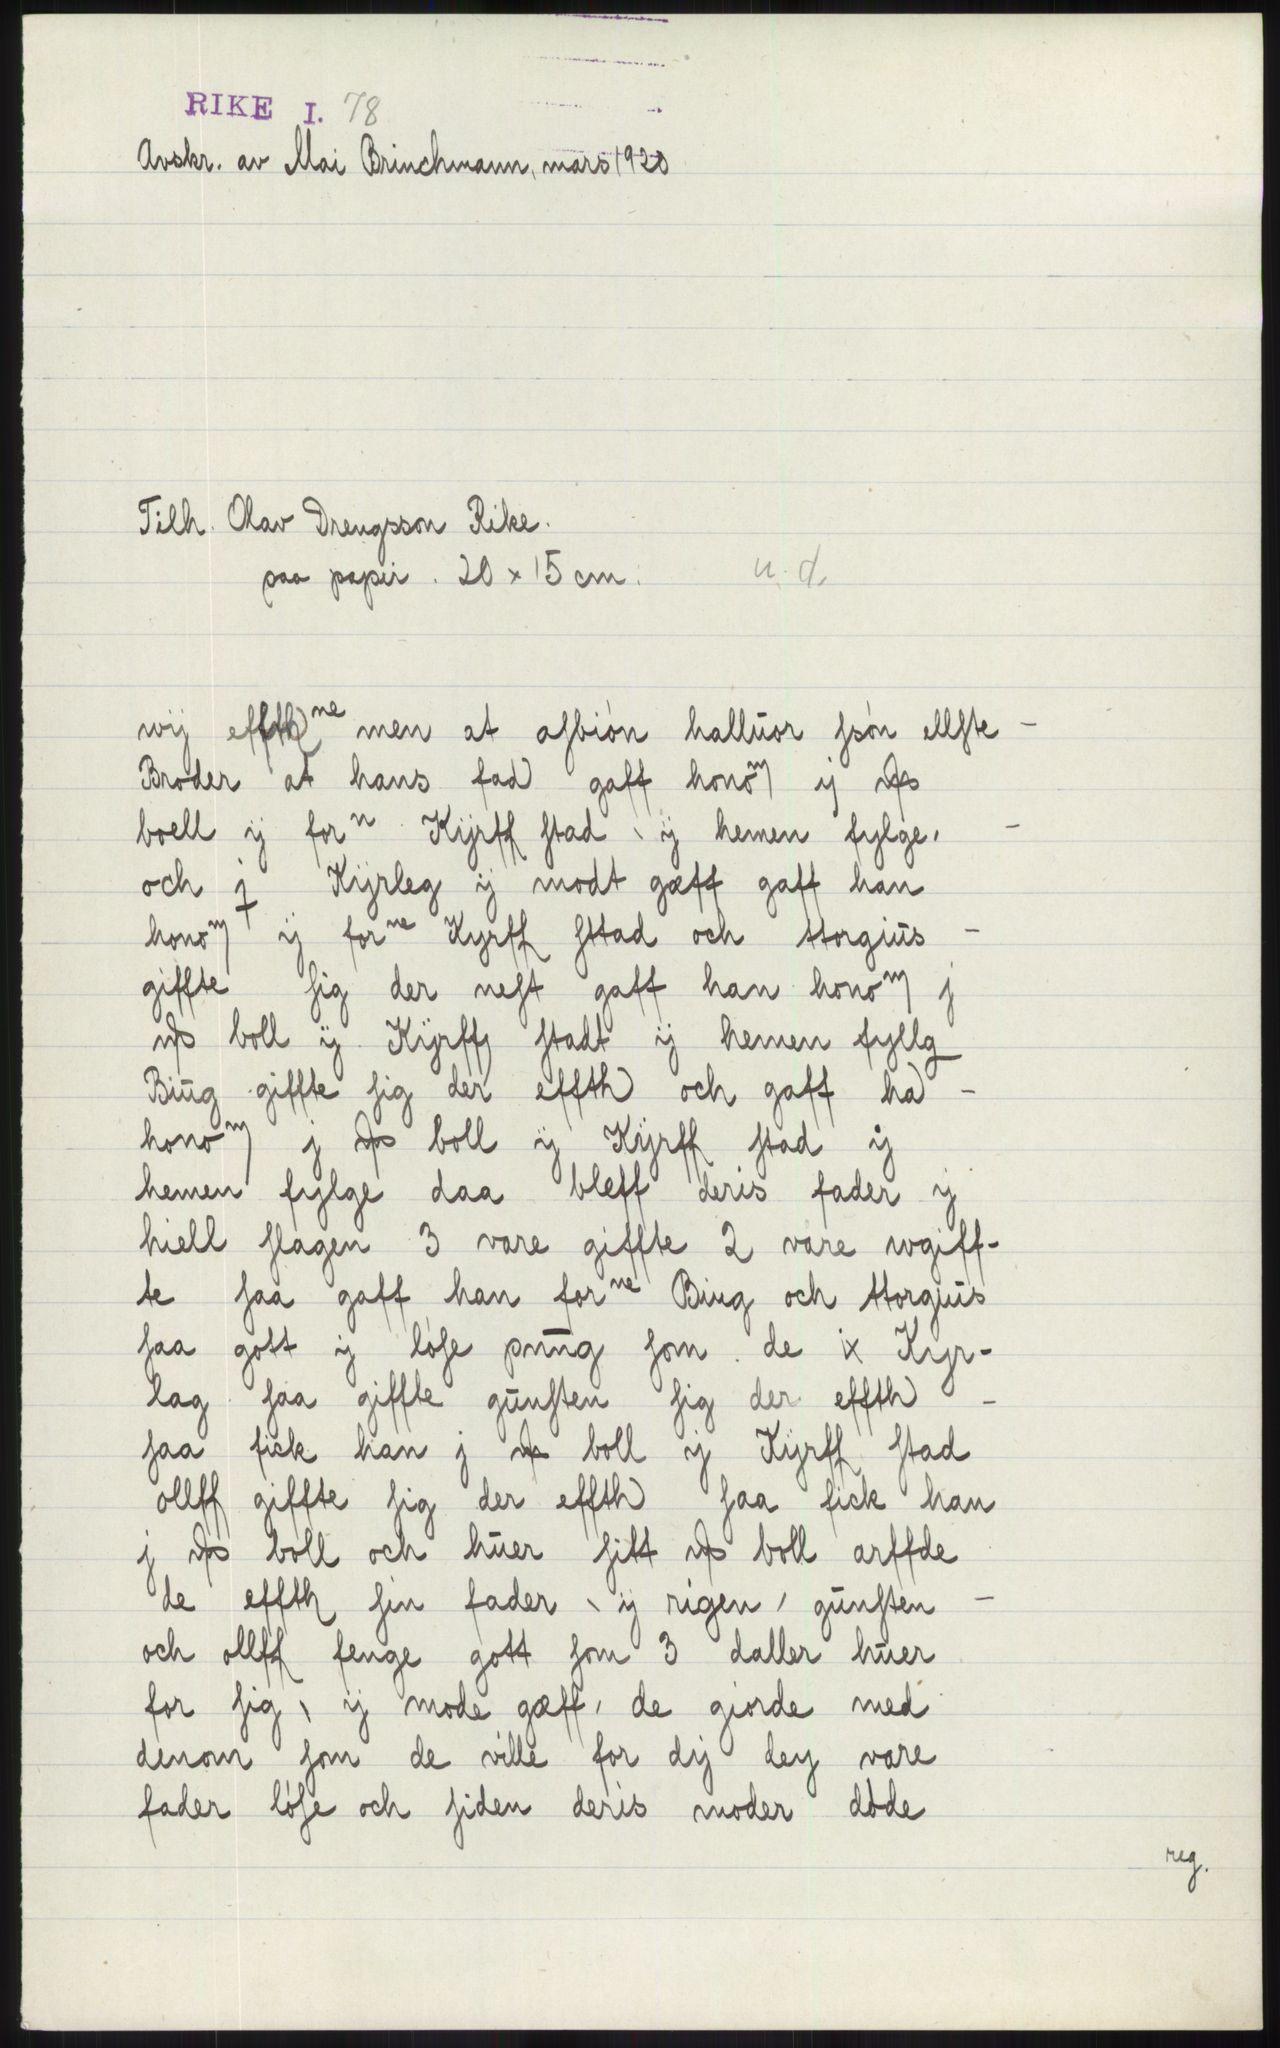 RIKE I. 78
Avskr. av Mai Brinchmann, mars 1920
Tilh. Olav Drengsson Rike.
paa papir. 20 x 15 cm. u. d.
wij effth ne men at asbión hallūor ssón ellste -
Broder at hans fad gaff honom ij
boell ij forn Kÿrff stad ij hemen fylge, -
och j Kÿrleg ij modt gæff gaff han
honom ij forne Kyrff sttad och ttorgiūs -
giffte sig der nest gaff han honom j
boll ij Kÿrff stadt ij hemen fyllg
Biūg giffte sig der effth och gaff ha -
honom j boll ij Kÿrff stad ij
hemen fylge daa bleff deris fader ij
hiell slagen 3 vare giffte 2 vare wgiff-
te saa gaff han forne Biug och ttorgiūs
saa gott ij löse pnūg som de ix Kyr-
lag saa giffte gūnsten sig der effth -
saa fick han j boll ij Kÿrff stad
ollff giffte sig der effth saa fick han
j boll och hūer sitt boll arffde
de effth sin fader ij rigen, gūnsten -
och ollff fenge gott som 3 daller hūer
for sig, ij mode gæff, de giorde med
denom som de ville for dij dey vare
fader löse och siden deris moder döde
reg.